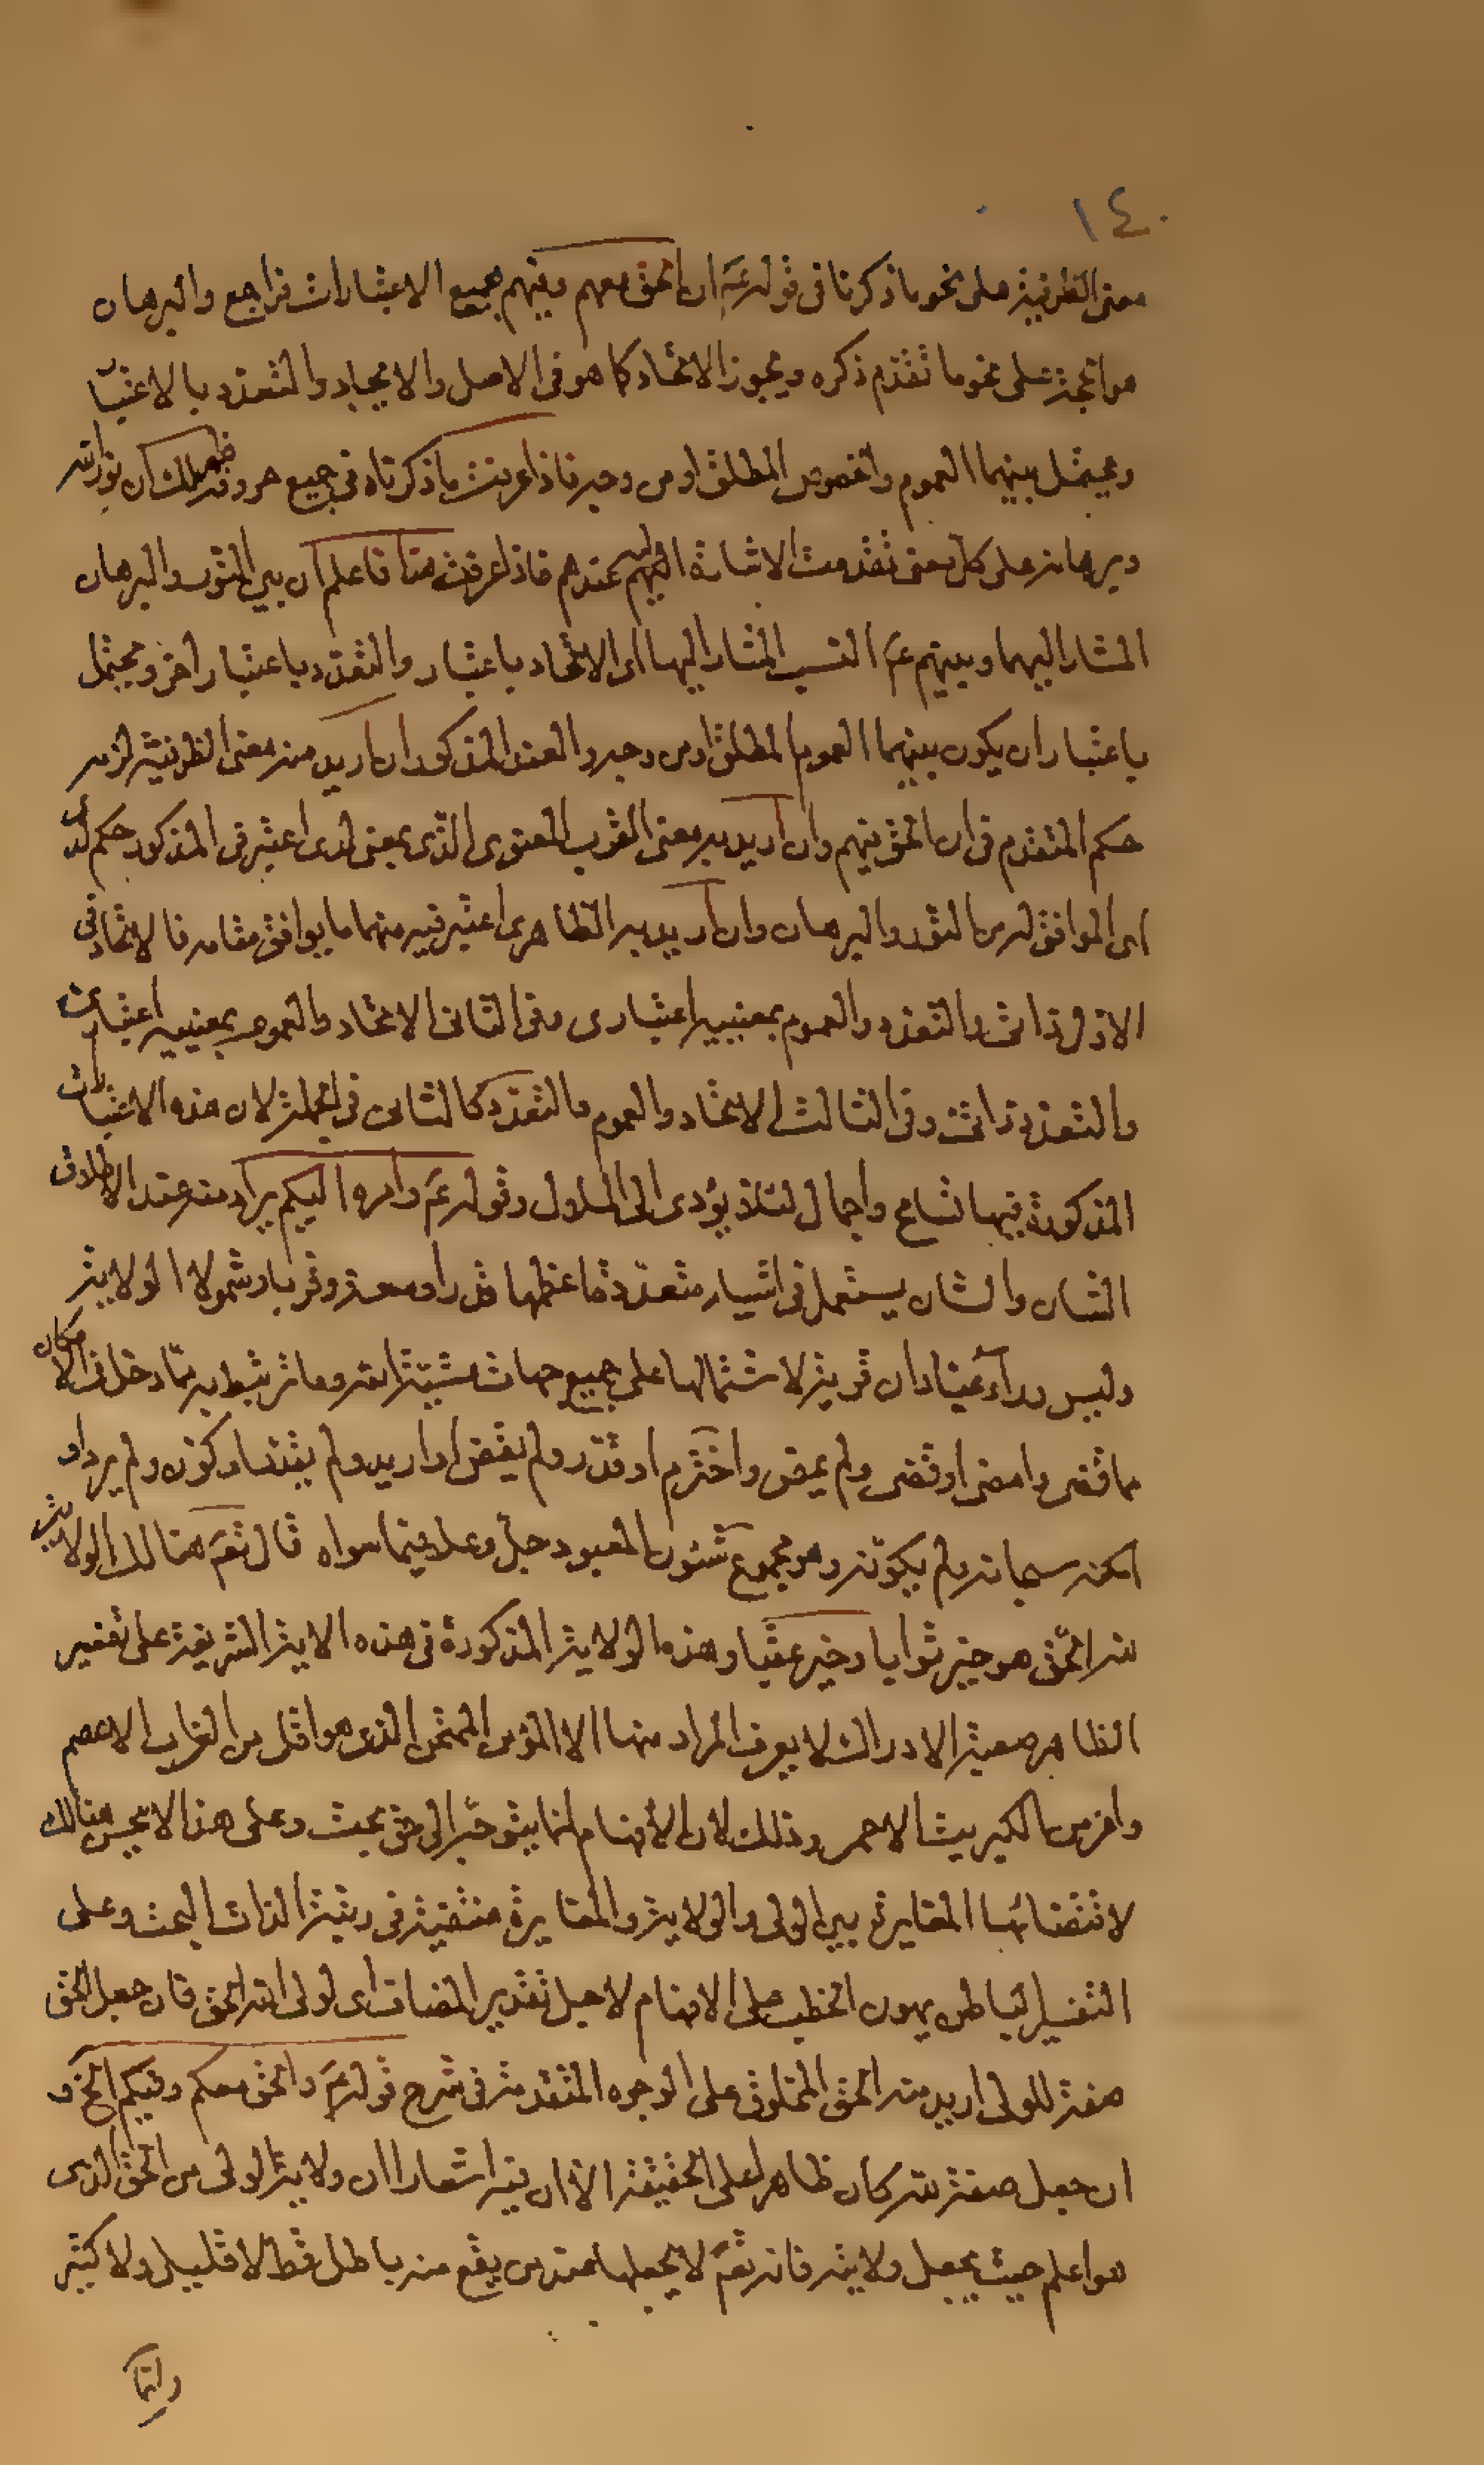 ١٤٠
معنى الظرفية على نحو ما ذكرنا فى قوله ع ان الحق معهم وفيهم بجميع الاعتبارات فراجع والبرهان
هو الحجة على نحو ما تقدم ذكره ويجوز الاتحاد كما هو فى الاصل والايجاد والتعدد بالاعتبا
ويحتمل بينهما العموم والخصوص المطلق او من وجه فاذا عرفت ما ذكرناه فى جميع حروفه ظهر لك ان نور الله
وبرهانه على كل معنى تقدمت الاشارة اليه عندهم فاذا عرفت هذا فاعلم ان بين النور والبرهان
المشار اليهما وبينهم ع النسب المشار اليها اى الاتحاد باعتبار والتعدد باعتبار اخر ويحتمل
باعتبار ان يكون بينهما العموم المطلق او من وجه والعند المذكور ان اريد منه معنى الظرفية لزمه
حكم المتقدم فى ان الحق فيهم وان اريد به معنى القرب المعنوى الذى بمعنى لدى اعتبر فى المذكور حكم لدى
اى الموافق له من النور والبرهان وان اريد به الظاهرى اعتبر فيه منهما ما يوافق مقامه فالاتحاد فى
الاول ذاتى والتعدد والعموم بمعنييه اعتبارى وفى الثانى الاتحاد والعموم بمعنييه اعتبارى
والتعدد ذاتى وفى الثالث الاتحاد والعموم والتعدد كالثانى فى الجملة لان هذه الاعتبارات
المذكورة فيها تسامح واجمال لئلا يؤدى الى الملال وقوله ع وامره اليكم يراد منه عند الاطلاق
الشان والشان يستعمل فى اشياء متعددة فاعظمها قدرا وسعة وقربا وشمولا الولاية
وليس وراء عبادان قرية لاشتمالها على جميع جهات مشية الله وما ترتبط به مما دخل فى الامكان
مما قضى وامضى او قضى ولم يمض واخترم او قدر ولم يقض او اريد ولم يقدر او كون ولم يرد او
امكنه سبحانه ولم يكونه وهو مجموع شئون المعبود جل وعلا فيما سواه قال تع هنالك الولاية
لله الحق هو خير ثوابا وخير عقبا وهذه الولاية المذكورة فى هذه الاية الشريفة على تفسير
الظاهر صعبة الادراك لا يعرف المراد منها الا المؤمن الممتحن الذى هو اقل من الغراب الاعصم
واعز من الكبريت الاحمر وذلك لان الافهام انما يتوجه الى حق بحت وعلى هذا لا يحسن هنالك
لاقتضائها المغايرة بين الولى والولاية والمغايرة منتفية فى رتبة الذات البحت وعلى
التفسير الباطن يهون الخطب على الافهام لاجل تقدير المضاف اى لولى الله الحق فان جعل الحق
صفة للولى اريد منه الحق المخلوق على الوجوه المتقدمة فى شرح قوله ع والحق معكم وفيكم الخ و
ان جعل صفة لله كان ظاهرا على الحقيقة الا ان فيه اشعارا ان ولاية الولى من الحق الذى
هو اعلم حيث يجعل ولايته فانه تع لا يجعلها عند من يقع منه باطل قط لا قليل ولا كثير
وانما